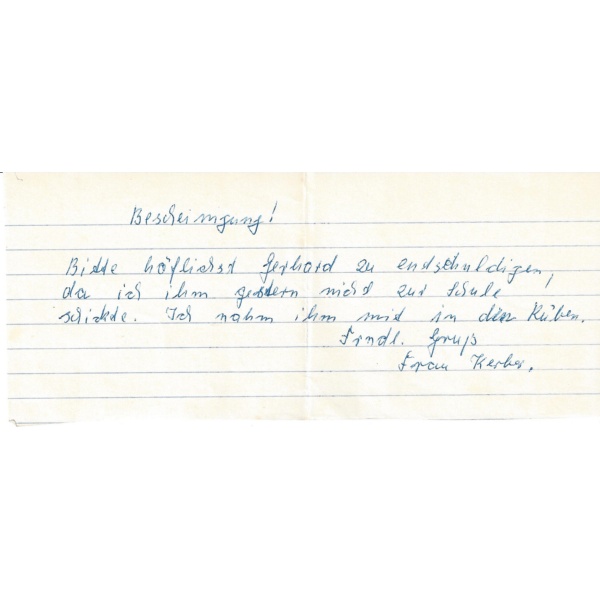 Bescheinigung!
Bitte höflichst Gerhard zu endschuldigen,
da ich ihm gestern nicht zur Schule
schickte. Ich nahm ihm mit in die Rüben.
Frndl. Gruß
Frau Kerber.